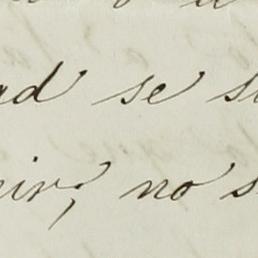 ad se s
ir; no s